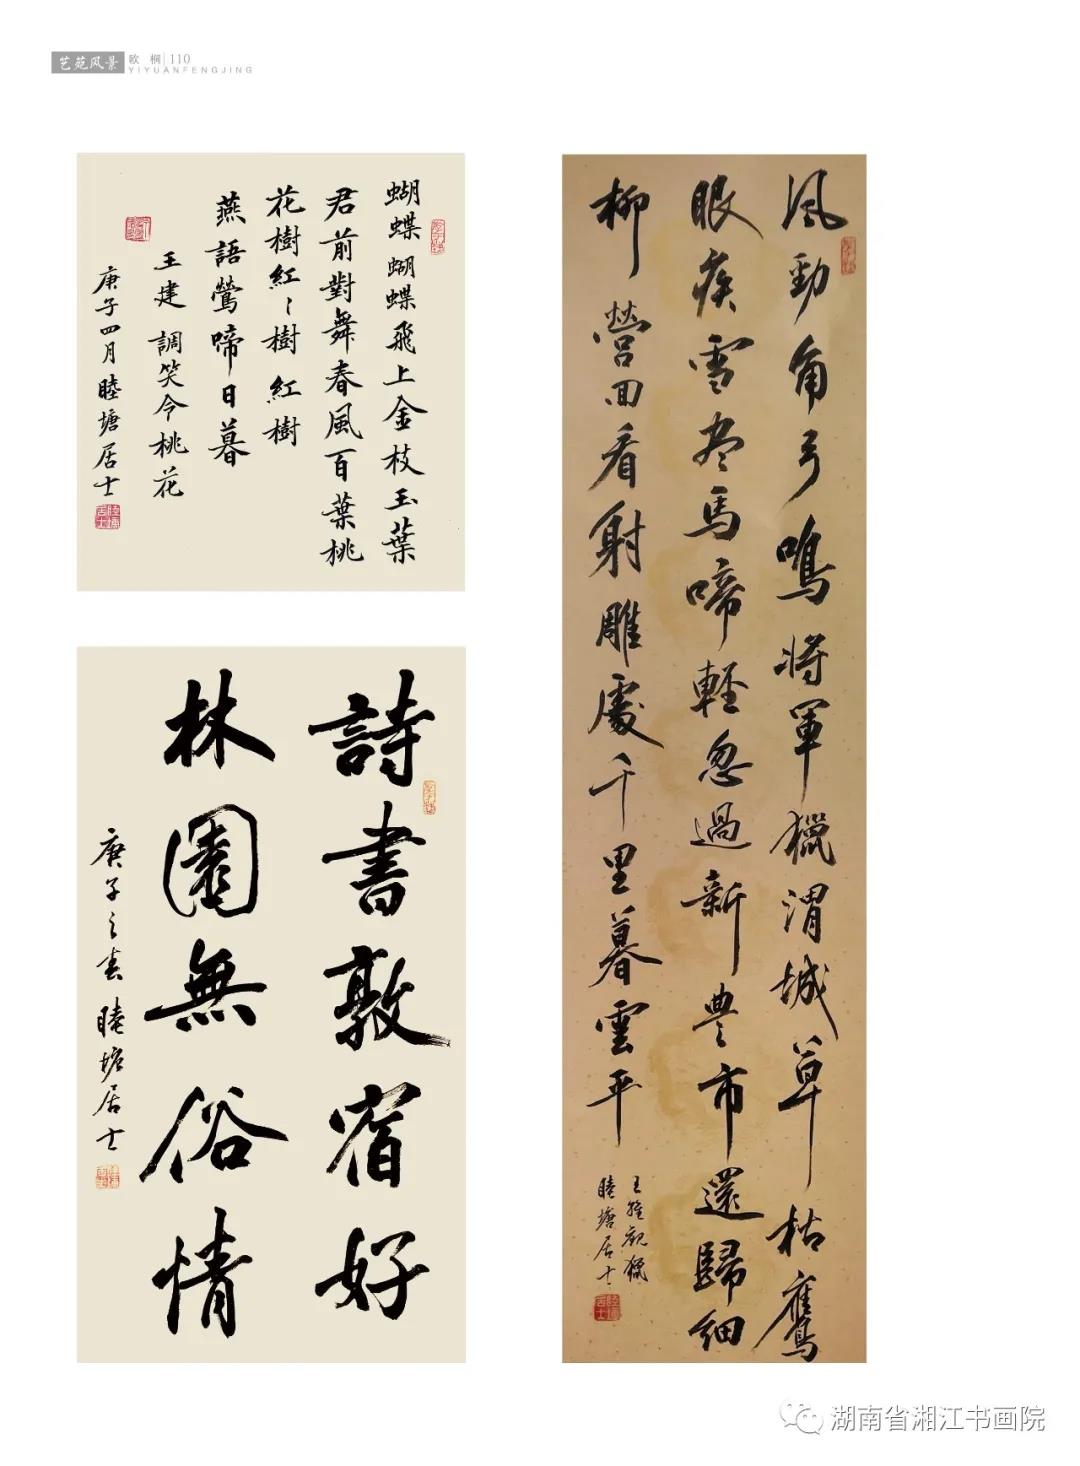 艺苑风景
欧 桐 | 110
YIYUANFENGJING
蝴蝶蝴蝶飛上金枝玉葉
君前對舞春風百葉桃
花樹紅〻樹紅樹
燕語鶯啼日暮
王建調笑令桃花
庚子四月睦塘居士
詩書敦宿好
林園無俗情
庚子之春睦塘居士
風勁角弓鳴将軍獵渭城草枯鷹
眼疾雪尽馬啼輕忽過新豊市還歸細
柳營回看射雕處千里暮雲平
王維觀獵
睦塘居士
湖南省湘江书画院